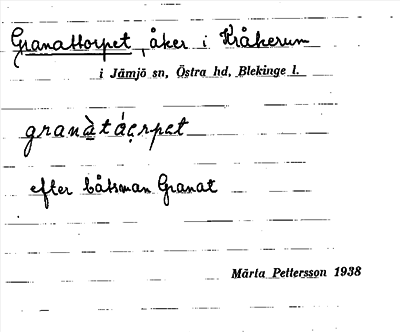 Granattorpet, åker i Kråkerum
i Jämjö sn, Östra hd, Blekinge l.
granàtá̜rpet
efter båtsman Granat
Märta Pettersson 1938